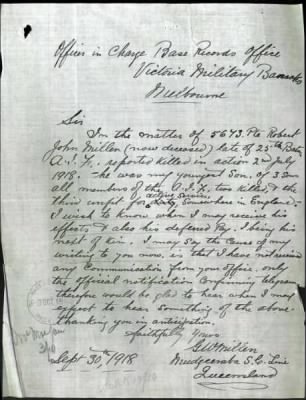 Officer in Charge Base Records Office
Victoria Military Barracks
Melbourne
Sir
In the matter of 5673. Pte Robert
John Millen (now deceased) late of 25th Batn
A.I.F., reported killed in action 2nd July
1918. - he was my youngest Son, of 3 Sons
all members of the A.I.F. two killed & the
active service,
third unfit for Duty, Somewhere in England -
I wish to know when I may receive his
effects & also his deferred Pay. I being his
next of Kin. I may Say the Cause of my
writing to you now, is that I have not received
any Communication from your Office, only
the Official notification Confirming telegram
therefore would be glad to hear when I may
expect to hear something of the above
thanking you in anticipation.
faithfully Yours
Millen
Mudgeeraba S.C. Line
Queensland
Sept 30th, 1918